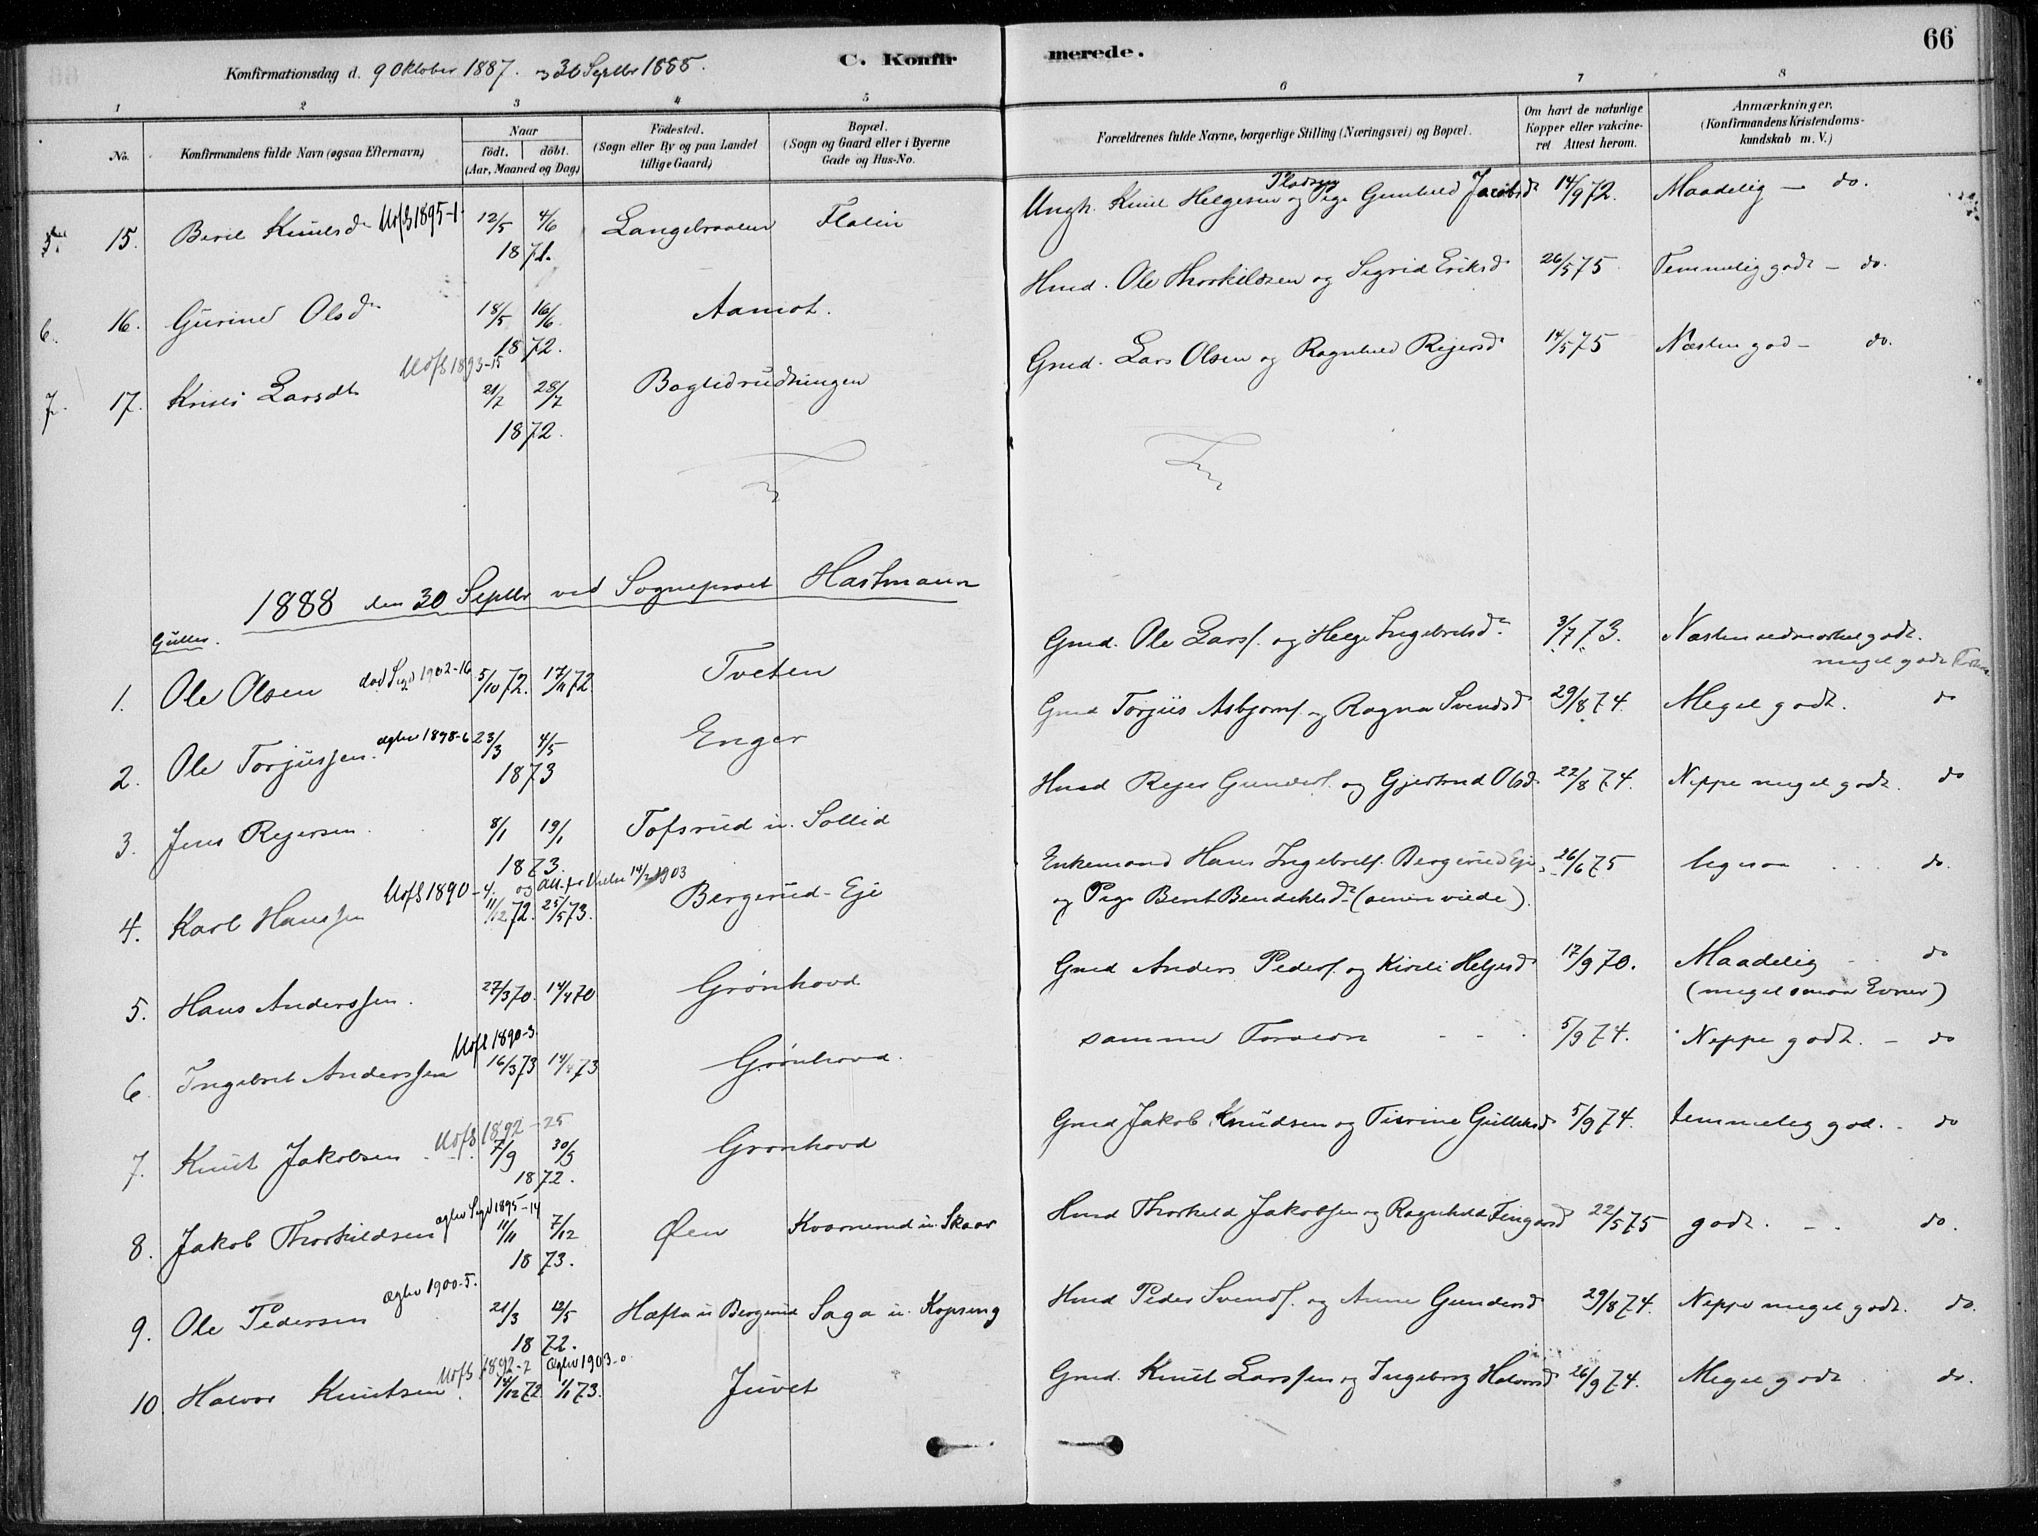 66
Konfirmationsdag d. 9 Oktober 1887. 30 Septbr 1888.
C. Konfirmerede.
1 2 3 4 5 6 7 8
No.
Konfirmandens fulde Navn (ogsaa Efternavn)
Naar
født. døbt.
(Aar, Maaned og Dag)
Fødested.
(Sogn eller By og paa Landet tillige Gaard)
Bopæl.
(Sogn og Gaard eller i Byerne Gade og Hus-No.
Forældrenes fulde Navne, borgerlige Stilling (Næringsvei) og Bopæl.
Om havt de naturlige Kopper eller vakcineret Attest herom.
Anmærkninger.
(Konfirmandens Kristendomskundskab m. V.)
5. 15. Berit Knutsd. Uofs 1895-1. 12/5 4/6 1871. Flatin Ungk. Knut Helgesen og Pige Gunhild Jacobsd 14/9 72. Maadelig — do.
6. 16. Gurine Olsd. 18/5 16/6 1872. Aamot. Hmd. Ole Thorkildsen og Sigrid Eriksd 26/5 75. Temmelig godt — do.
7. 17. Kristi Larsdt Uofs 1893-15 21/7 28/7 1872. Gmd. Lars Olsen og Ragnhild Rejersd 14/5 75 Næsten god — do.
1888 den 30 Septbr ved Sogneprest Hartmann
Gutter.
1. Ole Olsen død Sigd 1902-16 5/10 72. 17/11 72. Tveten Gmd. Ole Larss. og Helge Ingebretsd. 3/7 73. Næsten udmærket godt.
meget godt
2. Ole Torjussen. 1898-6 23/3 4/5 1873 Enger Gmd Torjus Asbjørns. og Ragna Svendsd 29/8 74. Meget godt. do
3. Jens Rejersen. 8/1 19/1 1873. Tofsrud u. Sollid Hmd Rejer Gunders. og Gjertrud Olsd. 22/8 74. Neppe meget godt. do
4. Karl Hanssen Uofs 1890-4. og Att. 14/2 1903 11/12 72. 25/5 73. Bergerud-Eje Enkemand Hans Ingebrets. Bergerud Eje 26/6 75 ligesaa do.
og Pige Berit Bendiktsd.
5. Hans Anderssen. 27/3 70. 14/4 70 Grønhovd Gmd Anders Peders. og Kirsti Helgesd 17/9 70. Maadelig do
(meget smaa Evner)
6 Ingebret Anderssen Uofs 1890-3. 16/3 73 14/4 73 Grønhovd. samme Foræld. 5/9 74. Neppe godt. — do
7. Knut Jakobsen Uofs 1892-25 7/9 30/9 1872. Grønhovd Gmd Jakob Knudsen og Gulleksd 5/9 74. temmelig god. - do
8. Jakob Thorkildsen Sigd 1895-14 11/11 7/12 1873. Øen Kvarnerud u. Skaar Hmd Thorkild Jakobsen og Ragnhild 22/5 75 godt. — do.
9. Ole Pedersen 1900-5. 21/3 12/5 1872. Hæfta u Bergerud Saga u. Kopseng Hmd Peder Svends. og Anne Gundersd 29/8 74. Neppe meget godt. do.
10. Halvor Knutsen Uofs 1892-2 1903-0 12/12 72 1/1 73. Juvet Gmd. Knut Larssen og Ingeborg Halvorsd 26/9 74. Meget godt do.